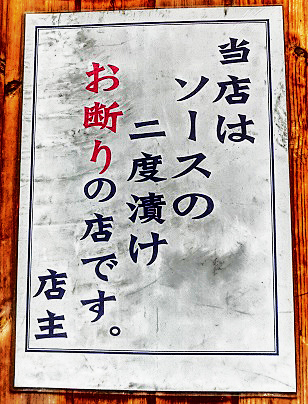 当店は
ソースの
二度漬け
お断りの店です。
店主